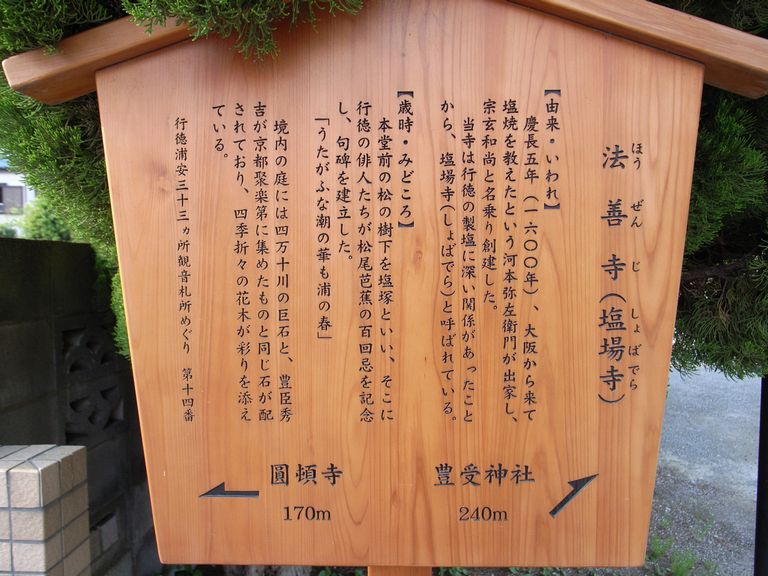 法善寺(塩場寺)
ほうぜんじ しょばでら
【由来・いわれ】
慶長五年(一六〇〇年)、大阪から来て
塩焼を教えたという河本弥左衛門が出家し、
宗玄和尚と名乗り創建した。
当寺は行徳の製塩に深い関係があったこと
から、塩場寺(しょばでら)と呼ばれている。
【歳時・みどころ】
本堂前の松の樹下を塩塚といい、そこに
行徳の俳人たちが松尾芭蕉の百回忌を記念
し、句碑を建立した。
「うたがふな潮の華も浦の春」
境内の庭には四万十川の巨石と、豊臣秀
吉が京都聚楽第に集めたものと同じ石が配
されており、四季折々の花木が彩りを添え
ている。
行徳浦安三十三ヵ所観音札所めぐり 第十四番
豊受神社
240m
圓頓寺
170m